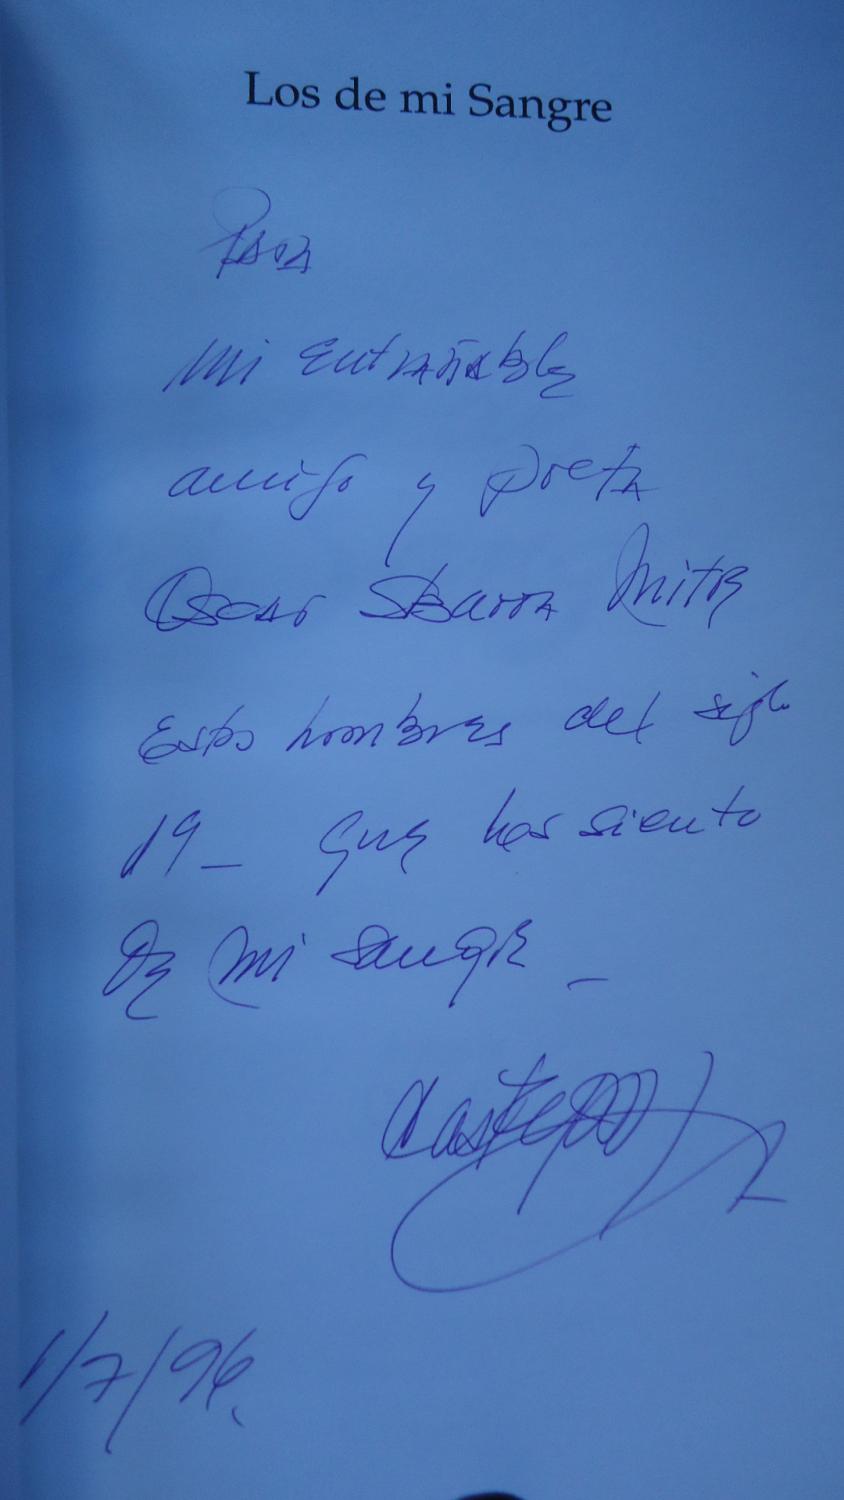 Los de mi Sangre
Para
mi entrañable
amigo y poeta
Oscar Sbarra Mitre
Estos hombres del siglo
19_ que los siento
de mi sangre _
1/7/96.